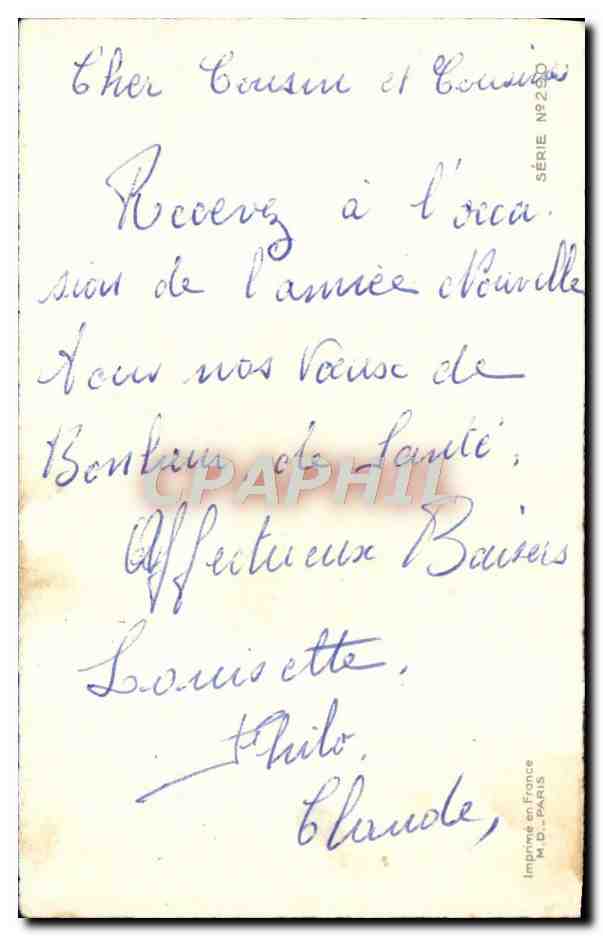 Cher Cousin et Cousines
Recevez à l'occa-
sion de l'année Nouvelle
tous nos Voeux de
Bonheur de Santé,
Affectueux Baisers
Louisette,
Philo.
Claude,
SÉRIE N° 290
Imprimé en France
M.D. - PARIS
CPAPHIL